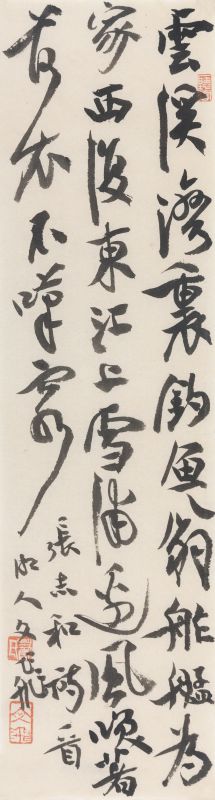 雲溪灣裏釣魚翁舴艋為
家西復東江上雪浦邊風咲著
荷衣不嘆窮
張志和詩
人文飛